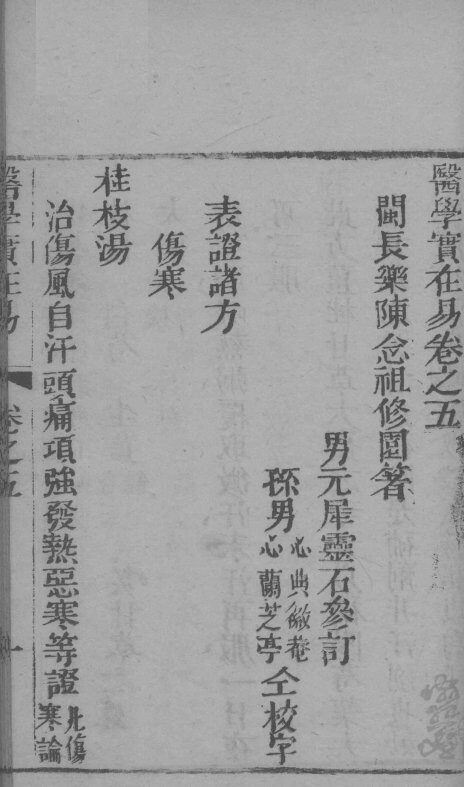 醫學實在易卷之五
閩長樂陳念祖修園著
男元犀靈石參訂
孫男心典徽菴心蘭芝亭仝校字
表證諸方
傷寒
桂枝湯
治傷風自汗頭痛項強發熱惡寒等證見傷寒論
醫學實在易 卷之五 一